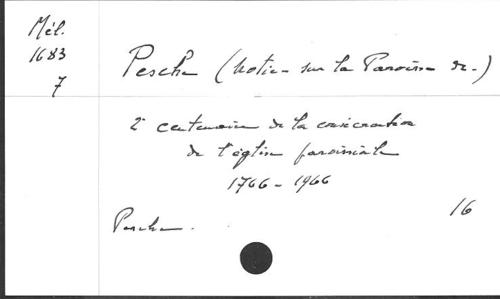 Mél.
1683
7
Pesche (Notice sur la Paroisse de -)
2e centenaire de la consécration
de l'église paroissiale
1766 - 1966
16
Pesche.